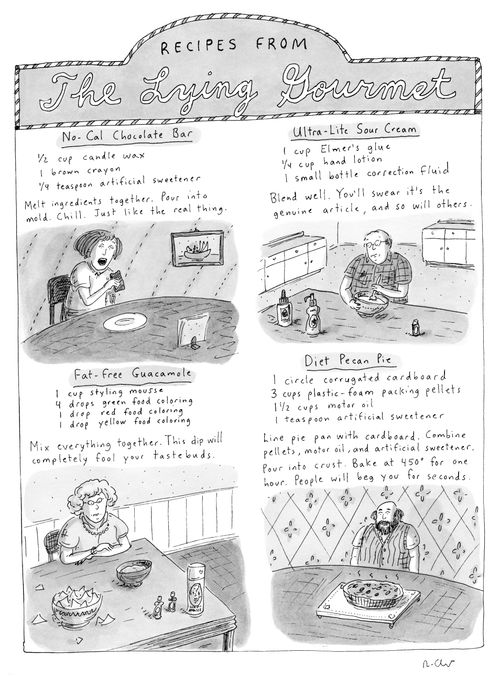 RECIPES FROM
The Lying Gourmet
No-Cal Chocolate Bar
1/2 cup candle wax
1 brown crayon
1/4 teaspoon artificial sweetener
Melt ingredients together. Pour into
mold. Chill. Just like the real thing.
Ultra-Lite Sour Cream
1 cup Elmer's glue
1/4 cup hand lotion
1 small bottle correction fluid
Blend well. You'll swear it's the
genuine article, and so will others.
Fat-free Guacamole
1 cup styling mousse
4 drops green food coloring
1 drop red food coloring
1 drop yellow food coloring
Mix everything together. This dip will
completely fool your tastebuds.
Diet Pecan Pie
1 circle corrugated cardboard
3 cups plastic-foam packing pellets
1 1/2 cups motor oil
1 teaspoon artificial sweetener
Line pie pan with cardboard. Combine
pellets, motor oil, and artificial sweetener.
Pour into crust. Bake at 450° for one
hour. People will beg you for seconds.